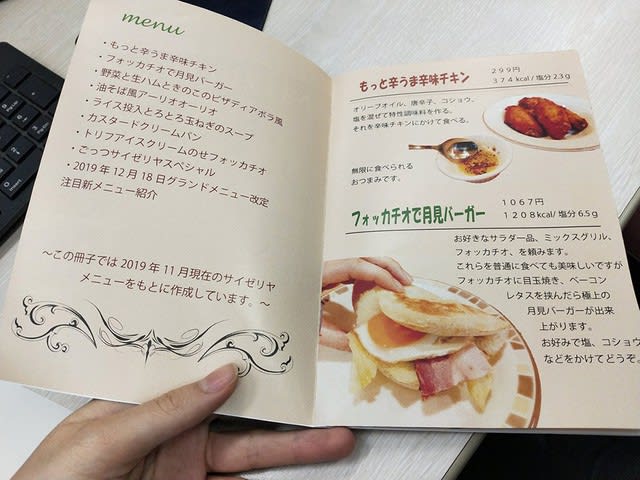 menu
・もっと辛うま辛味チキン
・フォッカチオで月見バーガー
・野菜と生ハムときのこのピザディアボラ風
・油そば風アーリオオーリオ
・ライス投入とろとろ玉ねぎのスープ
・カスタードクリームパン
・トリフアイスクリームのせフォッカチオ
・ごっつサイゼリヤスペシャル
・2019年12月18日グランドメニュー改定
注目新メニュー紹介
～この冊子では2019年11月現在のサイゼリヤ
メニューをもとに作成しています。～
もっと辛うま辛味チキン
299円
374kcal/塩分2.3g
オリーブオイル、唐辛子、コショウ、
塩を混ぜて特性調味料を作る。
それを辛味チキンにかけて食べる。
無限に食べられる
おつまみです。
フォッカチオで月見バーガー
1067円
1208kcal/塩分6.5g
お好きなサラダ一品、ミックスグリル、
フォッカチオ、を頼みます。
これらを普通に食べても美味しいですが
フォッカチオに目玉焼き、ベーコン
レタスを挟んだら極上の
月見バーガーが出来
上がります。
お好みで塩、コショウ
などをかけてどうぞ。